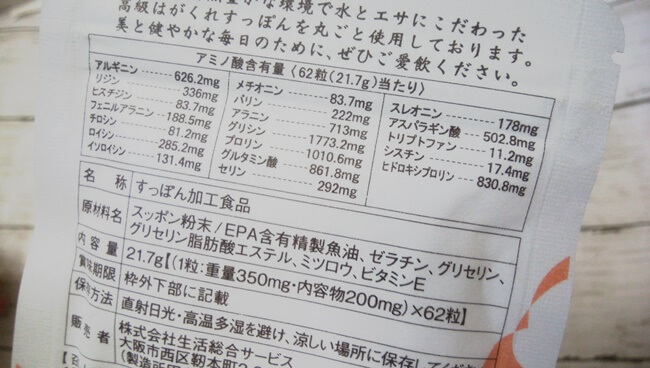 な環境で水とエサにこだわった
高級はがくれすっぽんを丸ごと使用しております。
美と健やかな毎日のために、ぜひご愛飲ください。
アミノ酸含有量〈62粒(21.7g)当たり〉
アルギニン 626.2mg
リジン 336mg
ヒスチジン 83.7mg
フェニルアラニン 188.5mg
チロシン 81.2mg
ロイシン 285.2mg
イソロイシン 131.4mg
メチオニン 83.7mg
バリン 222mg
アラニン 713mg
グリシン 1773.2mg
プロリン 1010.6mg
グルタミン酸 861.8mg
セリン 292mg
スレオニン 178mg
アスパラギン酸 502.8mg
トリプトファン 11.2mg
シスチン 17.4mg
ヒドロキシプロリン 830.8mg
名称 すっぽん加工食品
原材料名 スッポン粉末/EPA含有精製魚油、ゼラチン、グリセリン、
グリセリン脂肪酸エステル、ミツロウ、ビタミンE
内容量 21.7g【(1粒:重量350mg・内容物200mg)×62粒】
賞味期限 枠外下部に記載
保存方法 直射日光・高温多湿を避け、涼しい場所に保存してくだ
販売者 株式会社生活総合サービス
大阪市西区靭本町3
(製造所